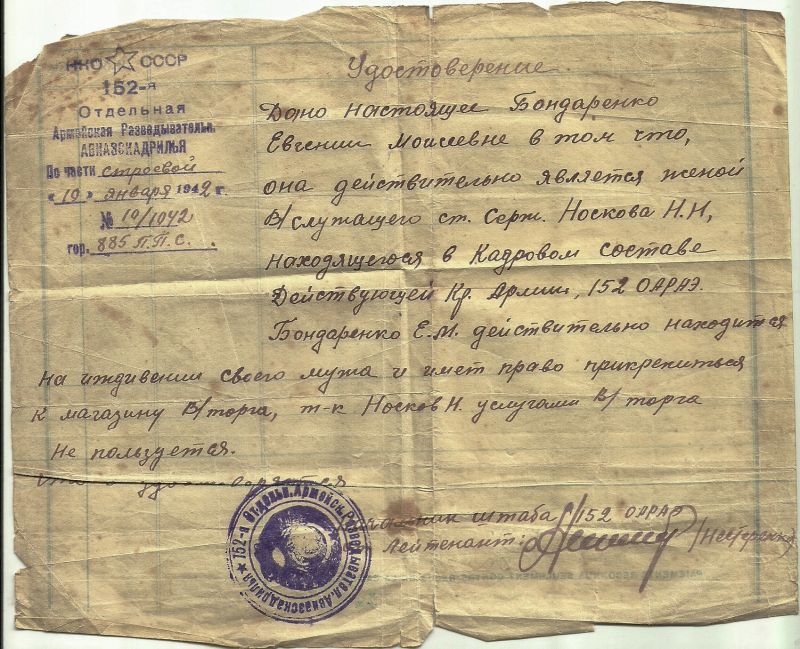 НКО СССР
152-я
Отдельная
Армейская Разведыватель.
АВИАЭСКАДРИЛЬЯ
По части строевой
"19" января 1942 г.
№ 19/1042
гор. 885 П.П.С.
Удостоверение
Дано настоящее Бондаренко
Евгении Моисеевне в том что,
она действительно является женой
В/служащего ст. Серж. Носкова Н.Н,
находящегося в Кадровом составе
Действующей Кр. Армии, 152 ОАРАЭ.
Бондаренко Е.М. действительно находится
на иждивении своего мужа и имет право прикрепиться
к магазину В/торга, т-к Носков Н. услугами В/торга
Не пользуется.
Что и удостоверяется
Начальник штаба 152 ОАРАЭ
Лейтенант: /Нестеренко
152-я Отдельн. Армейск. Разведывател. Авиаэскадрилья